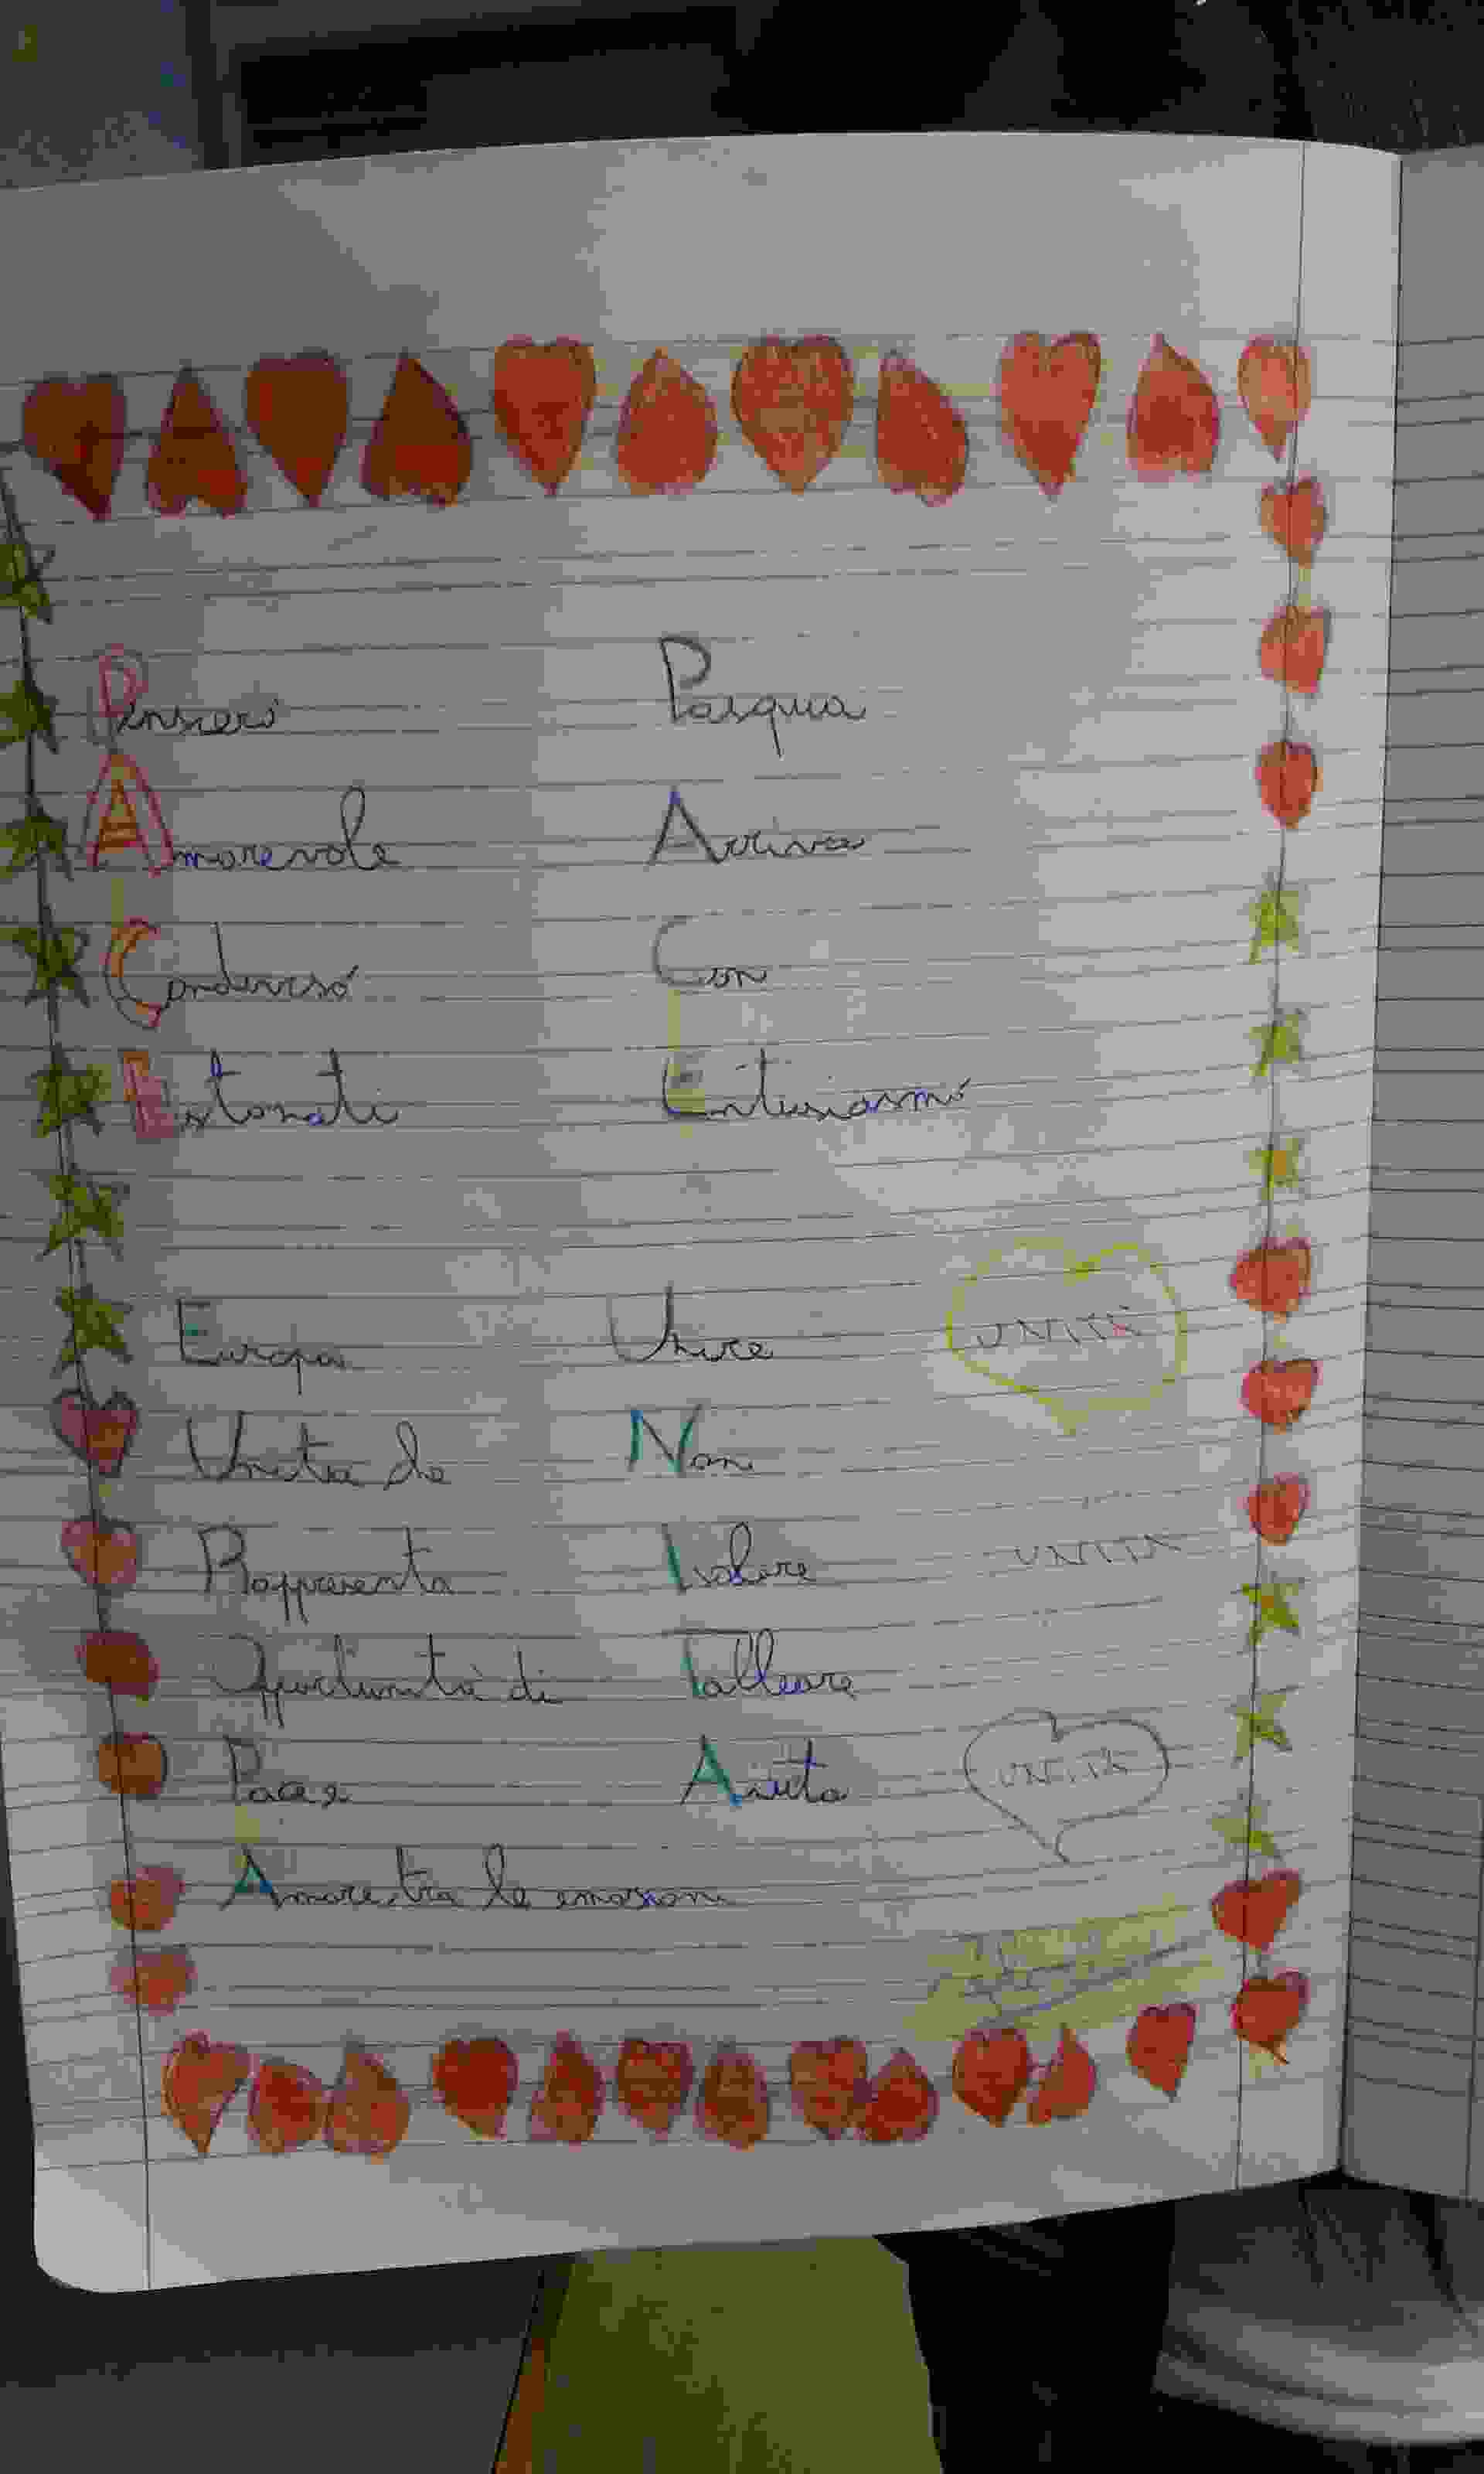 Pensiero Pasqua
Amorevole Arriva
Condiviso Con
Entusiasmo
Europa Unire UNITÀ
Unita che Non
Rappresenta Isolare UNITÀ
Opportunità di
Pace e Aiuta UNITÀ
Amore tra le emozioni